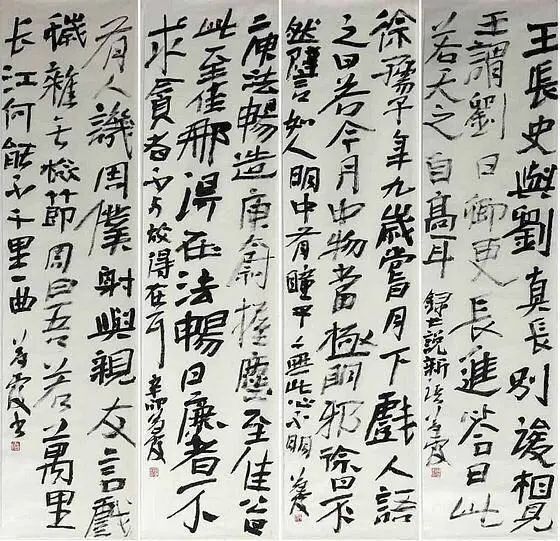 王長史與劉真長別後相見
王謂劉曰卿更長進答曰此
若天之自高耳 錄世說新語
徐孺子年九歲嘗月下戲人語
之曰若令月中物當極明邪徐曰不
然譬如人眼中有瞳子無此必不明
庾法暢造庾尉握麈至佳
此至佳那得在法暢曰廉者不
求貪者不與故得在耳
有人譏周僕射與親友言戲
穢雜無檢節周曰吾若萬里
長江何能不千里一曲